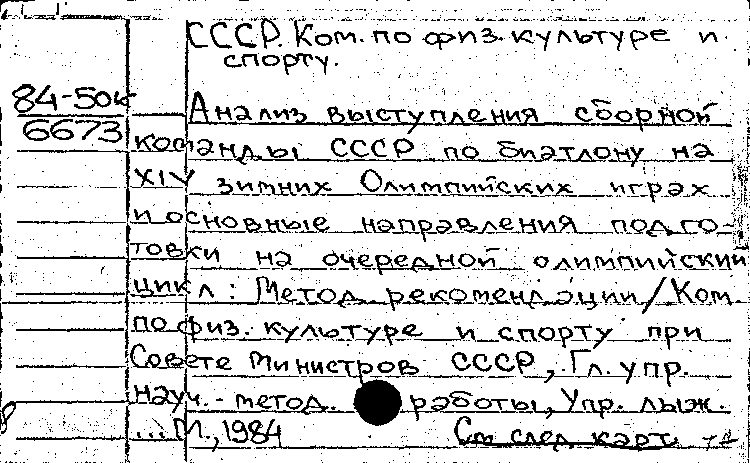 СССР. Ком. по физ. культуре и
спорту.
84-50к
6673
Анализ выступления сборной
команды СССР по биатлону на
XIV зимних Олимпийских играх
и основные направления подго-
товки на очередной олимпийский
цикл: Метод. рекомендации/Ком.
по физ. культуре и спорту при
Совете Министров СССР, Гл. упр.
науч.-метод. работы, Упр. лыж.
...М., 1984
См след карт.